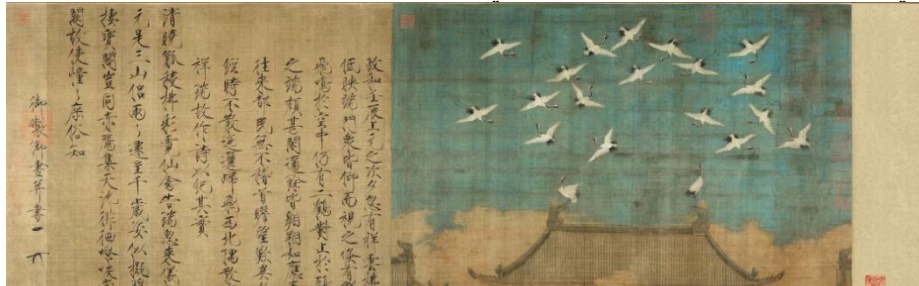 政和壬辰上元之次夕忽有祥雲拂
低映端門眾皆仰而視之倏有群
飛鳴於空中仍有二鶴對止於鴟
之端頗甚閒適餘皆翱翔如應奏
往來都民無不稽首瞻望歎異久
經時不散迤邐歸飛西北隅散
祥瑞故作詩以紀其實
清曉觚稜拂彩霓仙禽告瑞忽來儀
元是三山侶兩兩還呈千歲姿似擬碧
棲寶閣豈同赤雁集天池徘徊嘹唳當
闕故使憧々庶俗知
御製御畫并書